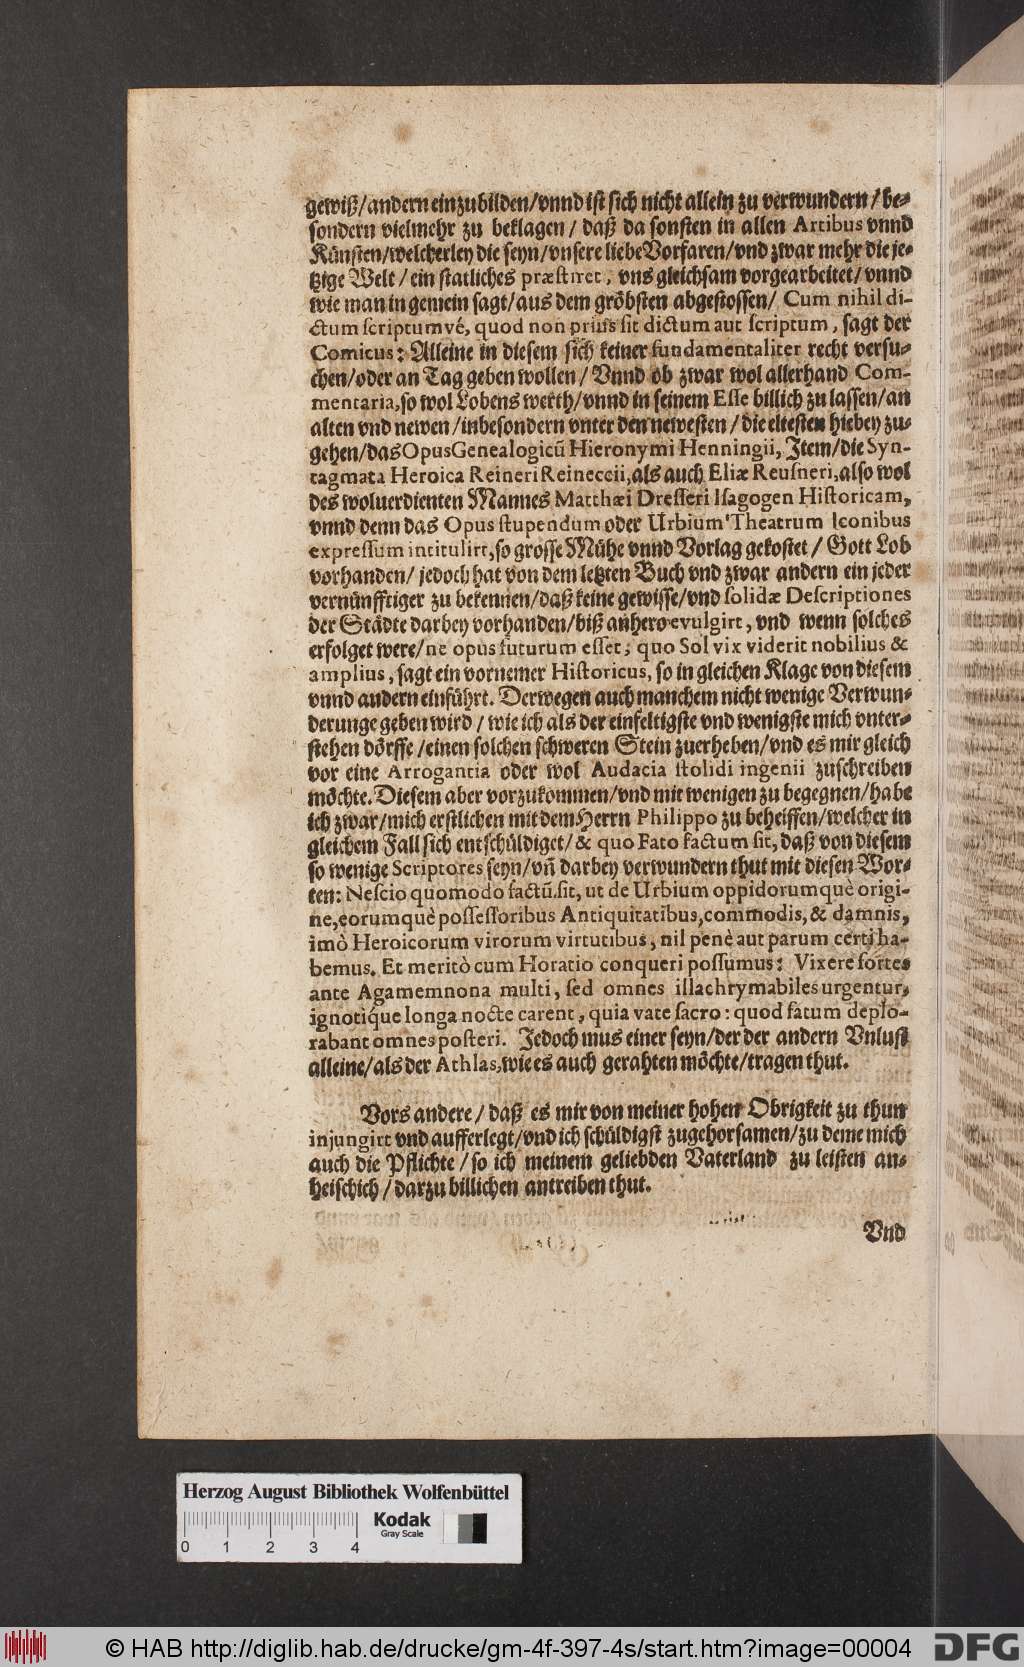 gewiß/andern einzubilden/vnnd ist sich nicht allein zu verwundern/be-
sondern vielmehr zu beklagen/ daß da sonsten in allen Artibus vnnd
Künsten/welcherley die seyn/vnsere liebe Vorfaren/vnd zwar mehr die je-
tzige Welt/ein statliches præstiret, vns gleichsam vorgearbeitet/vnnd
wie man in gemein sagt/aus dem gröbsten abgestossen/ Cum nihil di-
ctum scriptumvé, quod non priùs sit dictum aut scriptum, sagt der
Comicus: Alleine in diesem sich keiner fundamentaliter recht versu-
chen/oder an Tag geben wollen/ Vnnd ob zwar wol allerhand Com-
mentaria, so wol Lobens werth/vnnd in seinem Esse billich zu lassen/an
alten vnd newen/inbesondern vnter den newesten/die eltesten hiebey zu-
gehen/das Opus Genealogicũ Hieronymi Henningii, Item/die Syn-
tagmata Heroica Reineri Reineccii, als auch Eliæ Reusneri, also wol
des woluerdienten Mannes Matthæi Dresseri Isagogen Historicam,
vnnd denn das Opus stupendum oder Urbium Theatrum Iconibus
expressum intitulirt, so grosse Mühe vnnd Vorlag gekostet/ Gott Lob
vorhanden/ jedoch hat von dem letzten Buch vnd zwar andern ein jeder
vernünfftiger zu bekennen/daß keine gewisse/vnd solidæ Descriptiones
der Städte darbey vorhanden/biß anhero evulgirt, vnd wenn solches
erfolget were/ne opus futurum esset, quo Sol vix viderit nobilius &
amplius, sagt ein vornemer Historicus, so in gleichen Klage von diesem
vnnd andern einführt. Derwegen auch manchem nicht wenige Verwun-
derunge geben wird/ wie ich als der einfeltigste vnd wenigste mich vnter-
stehen dörffe/einen solchen schweren Stein zuerheben/vnd es mir gleich
vor eine Arrogantia oder wol Audacia stolidi ingenii zuschreiben
möchte. Diesem aber vorzukommen/vnd mit wenigen zu begegnen/habe
ich zwar/mich erstlichen mit dem Herrn Philippo zu beheiffen/welcher in
gleichem Fall sich entschüldiget/& quo Fato factum sit, daß von diesem
so wenige Scriptores seyn/vñ darbey verwundern thut mit diesen Wor-
ten: Nescio quomodo factũ sit, ut de Urbium oppidorumquè origi-
ne, eorumquè possessoribus Antiquitatibus, commodis, & damnis,
imò Heroicorum virorum virtutibus, nil penè aut parum certi ha-
bemus. Et meritò cum Horatio conqueri possumus: Vixere fortes
ante Agamemnona multi, sed omnes illachrymabiles urgentur,
ignotíque longa nocte carent, quia vate sacro: quod fatum deplo-
rabant omnes posteri. Jedoch mus einer seyn/der der andern Vnlust
alleine/als der Athlas, wie es auch gerahten möchte/tragen thut.
Vors andere/ daß es mir von meiner hohen Obrigkeit zu thun
injungirt vnd aufferlegt/vnd ich schüldigst zugehorsamen/zu deme mich
auch die Pflichte/so ich meinem geliebden Vaterland zu leisten an-
heischich/darzu billichen antreiben thut.
Vnd
Herzog August Bibliothek Wolfenbüttel
Kodak
Gray Scale
0 1 2 3 4
© HAB http://diglib.hab.de/drucke/gm-4f-397-4s/start.htm?image=00004
DFG